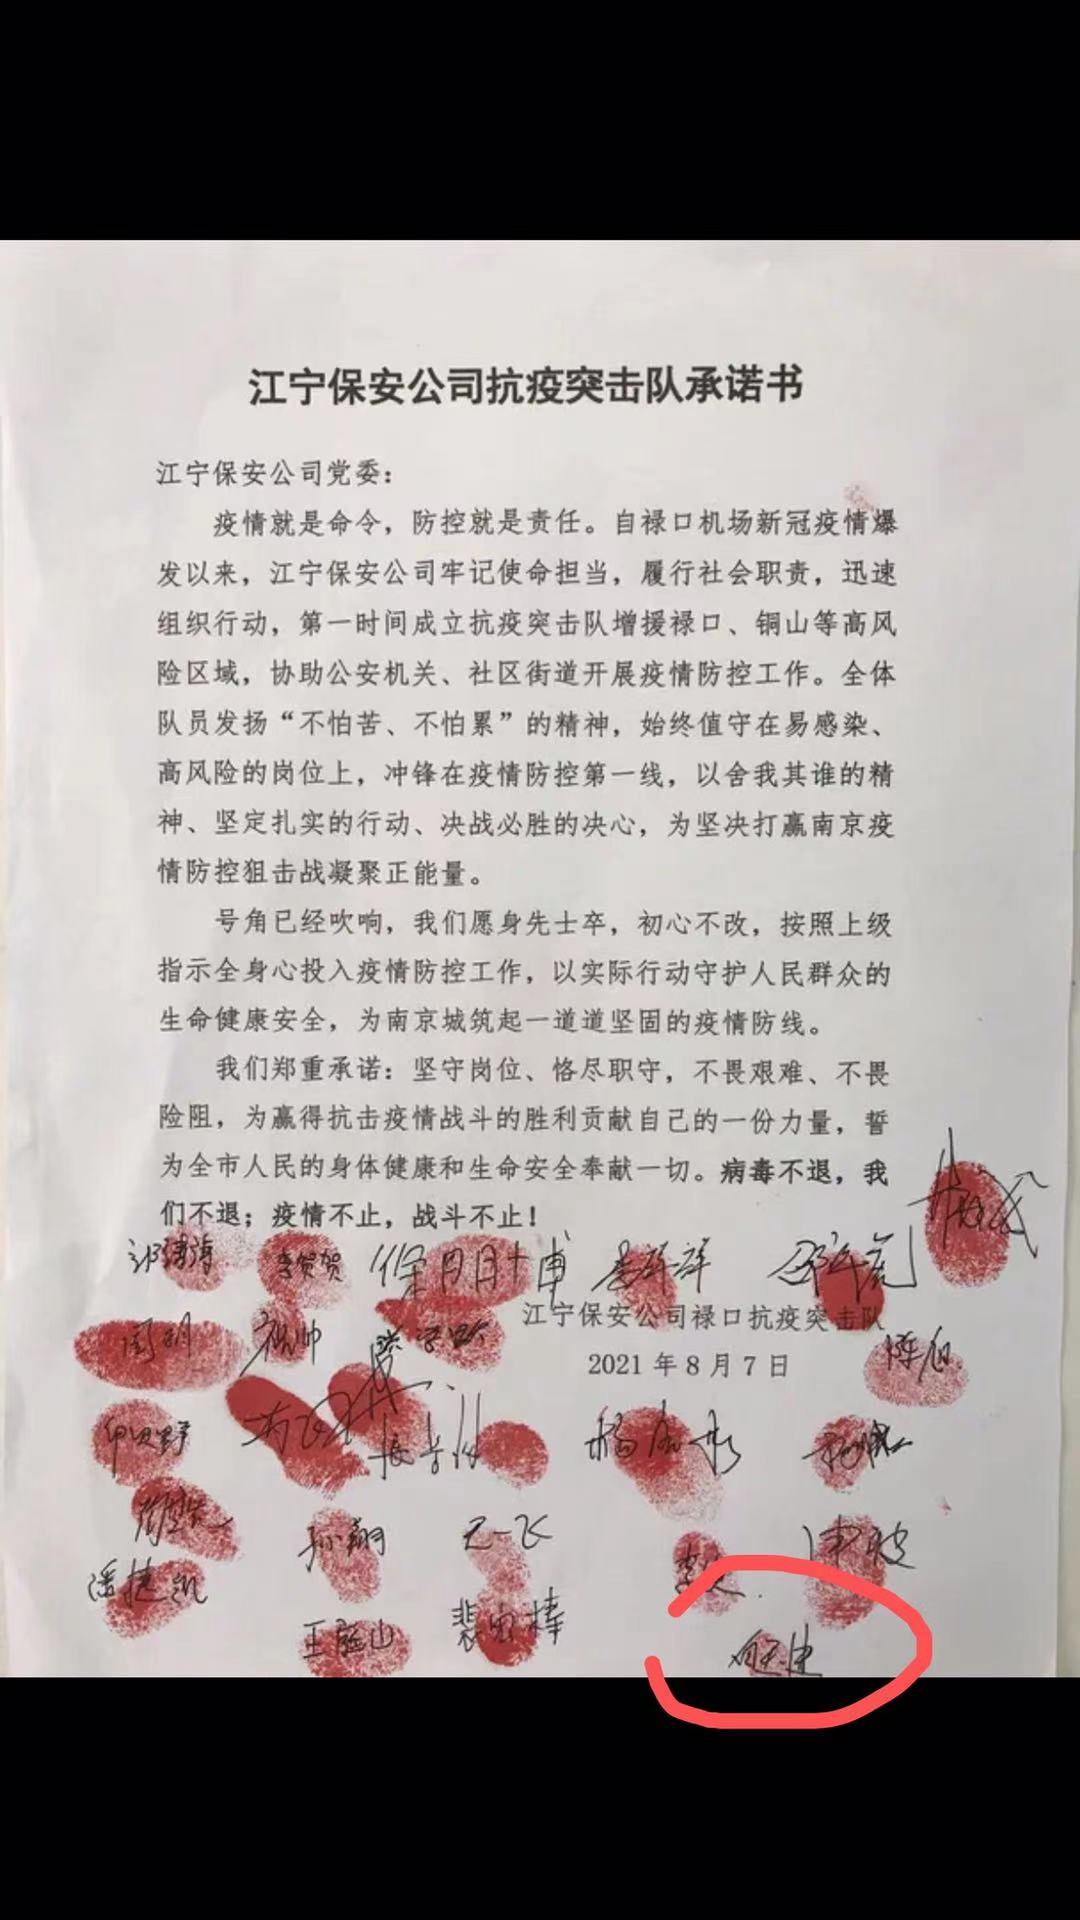 江宁保安公司抗疫突击队承诺书
江宁保安公司党委：
疫情就是命令，防控就是责任。自禄口机场新冠疫情爆
发以来，江宁保安公司牢记使命担当，履行社会职责，迅速
组织行动，第一时间成立抗疫突击队增援禄口、铜山等高风
险区域，协助公安机关、社区街道开展疫情防控工作。全体
队员发扬“不怕苦、不怕累”的精神，始终值守在易感染、
高风险的岗位上，冲锋在疫情防控第一线，以舍我其谁的精
神、坚定扎实的行动、决战必胜的决心，为坚决打赢南京疫
情防控狙击战凝聚正能量。
号角已经吹响，我们愿身先士卒，初心不改，按照上级
指示全身心投入疫情防控工作，以实际行动守护人民群众的
生命健康安全，为南京城筑起一道道坚固的疫情防线。
我们郑重承诺：坚守岗位、恪尽职守，不畏艰难、不畏
险阻，为赢得抗击疫情战斗的胜利贡献自己的一份力量，誓
为全市人民的身体健康和生命安全奉献一切。病毒不退，我
们不退；疫情不止，战斗不止！
李贺贺
江宁保安公司禄口抗疫突击队
周明 祝帅
2021 年 8 月 7 日
孙翔
潘捷凯